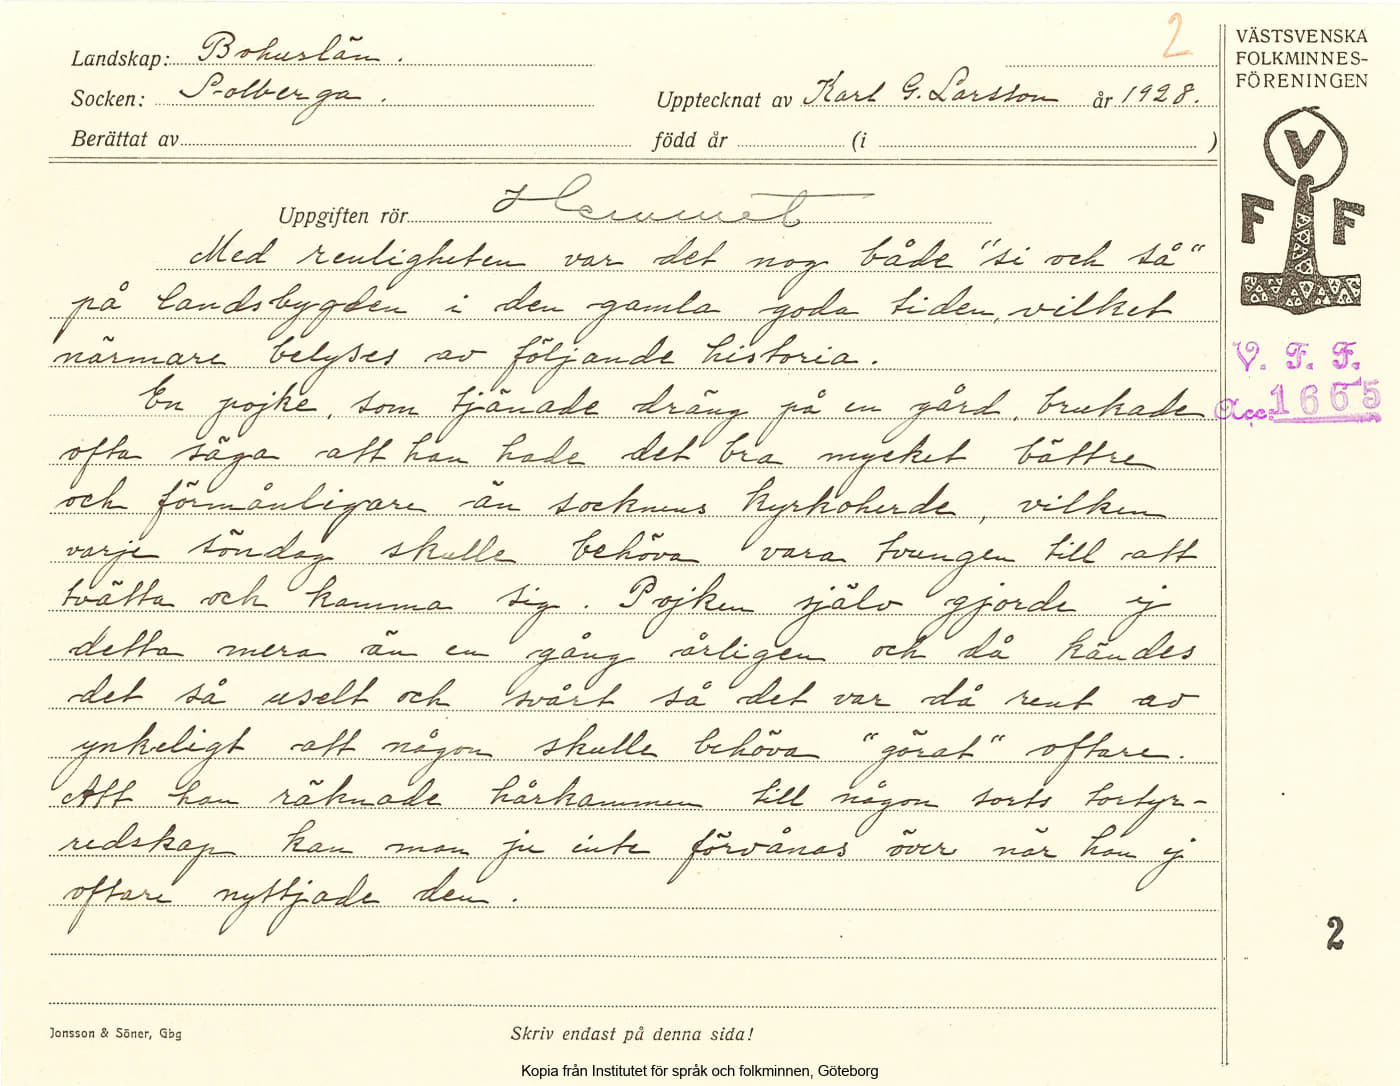 2
Landskap: Bohuslän.
Socken: Solberga.
Upptecknat av Karl G. Larsson år 1928.
Berättat av född år (i )
Uppgiften rör Hemmet
Med renligheten var det nog både "si och så"
på landsbygden i den gamla goda tiden, vilket
närmare belyses av följande historia.
En pojke, som tjänade dräng på en gård, brukade
ofta säga att han hade det bra mycket bättre
och förmånligare än socknens kyrkoherde, vilken
varje söndag skulle behöva vara tvungen till att
tvätta och kamma sig. Pojken själv gjorde ej
detta mera än en gång årligen och då kändes
det så uselt och svårt så det var då rent av
ynkeligt att någon skulle behöva "görat" oftare.
Att han räknade hårkammen till någon sorts tortyr-
redskap kan man ju inte förvånas över när han ej
oftare nyttjade den.
Jonsson & Söner, Gbg
Skriv endast på denna sida!
VÄSTSVENSKA
FOLKMINNES-
FÖRENINGEN
V
F F
V. F. F.
Acc: 1665
2
Kopia från Institutet för språk och folkminnen, Göteborg